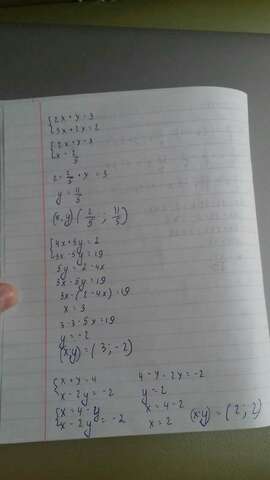 {2x + y = 3
{3x + 2x = 2
{2x + y = 3
{x = 2/5
2 · 2/5 + y = 3
y = 11/5
(x, y) (2/5 ; 11/5)
{4x + 5y = 2
{3x - 5y = 19
5y = 2 - 4x
3x - 5y = 19
3x - (2 - 4x) = 19
x = 3
3 · 3 - 5y = 19
y = -2
(x; y) = (3 ; -2)
{x + y = 4
{x - 2y = -2
{x = 4 - y
{x - 2y = -2
4 - y - 2y = -2
y = 2
x = 4 - 2
x = 2
(x; y) = (2 ; 2)